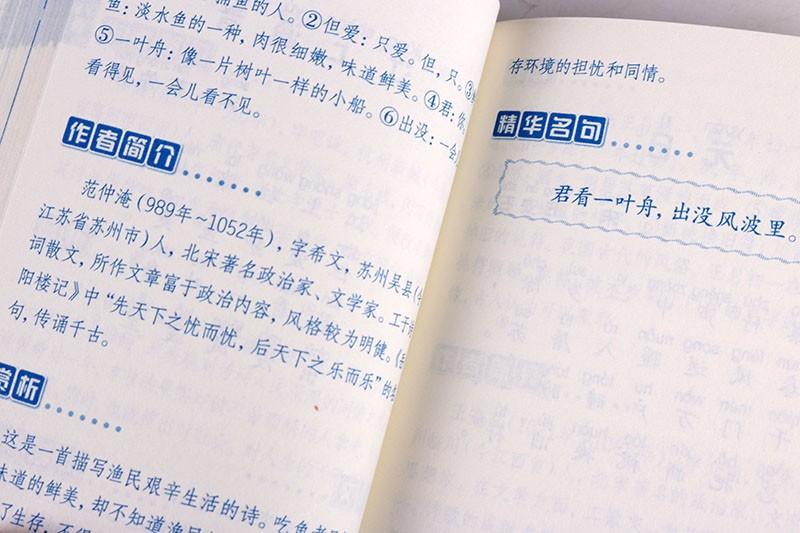 捕鱼的人。②但爱：只爱。但，只。③
鱼：淡水鱼的一种，肉很细嫩，味道鲜美。④君：你。
⑤一叶舟：像一片树叶一样的小船。⑥出没：一会
看得见，一会儿看不见。
作者简介
范仲淹（989年～1052年），字希文，苏州吴县（
江苏省苏州市）人，北宋著名政治家、文学家。工于诗
词散文，所作文章富于政治内容，风格较为明健。《岳
阳楼记》中“先天下之忧而忧，后天下之乐而乐”的
句，传诵千古。
赏析
这是一首描写渔民艰辛生活的诗。吃鱼
味道的鲜美，却不知道渔
了生存，不得
存环境的担忧和同情。
精华名句
君看一叶舟，出没风波里。